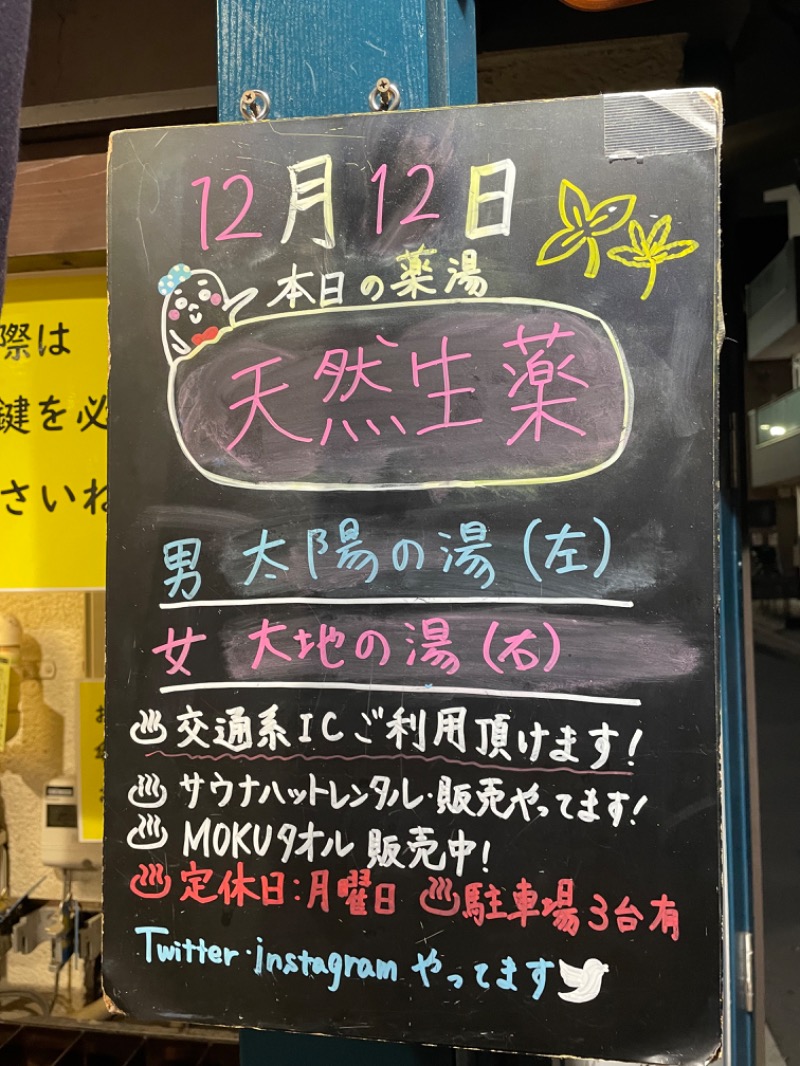 12月12日
本日の薬湯
天然生薬
男 太陽の湯(左)
女 大地の湯(右)
♨交通系ICご利用頂けます!
♨サウナハットレンタル・販売やってます!
♨MOKUタオル 販売中!
♨定休日:月曜日 ♨駐車場3台有
Twitter・instagramやってます
際は
鍵を必
さいね